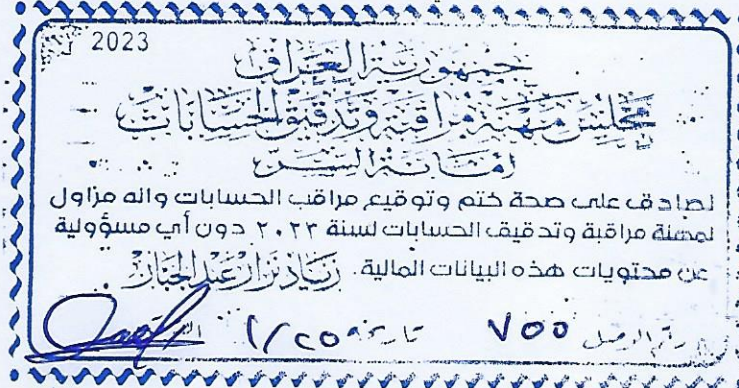 2023
جمهورية العراق
مجلس مهنة مراقبة وتدقيق الحسابات
امانة السر
نصادق على صحة ختم وتوقيع مراقب الحسابات وانه مزاول
لمهنة مراقبة وتدقيق الحسابات لسنة ٢٠٢٣ دون أي مسؤولية
عن محتويات هذه البيانات المالية. زياد نزار عبد الجبار
رقم الوصل ٧٥٥ تاريخه ٢٥/١